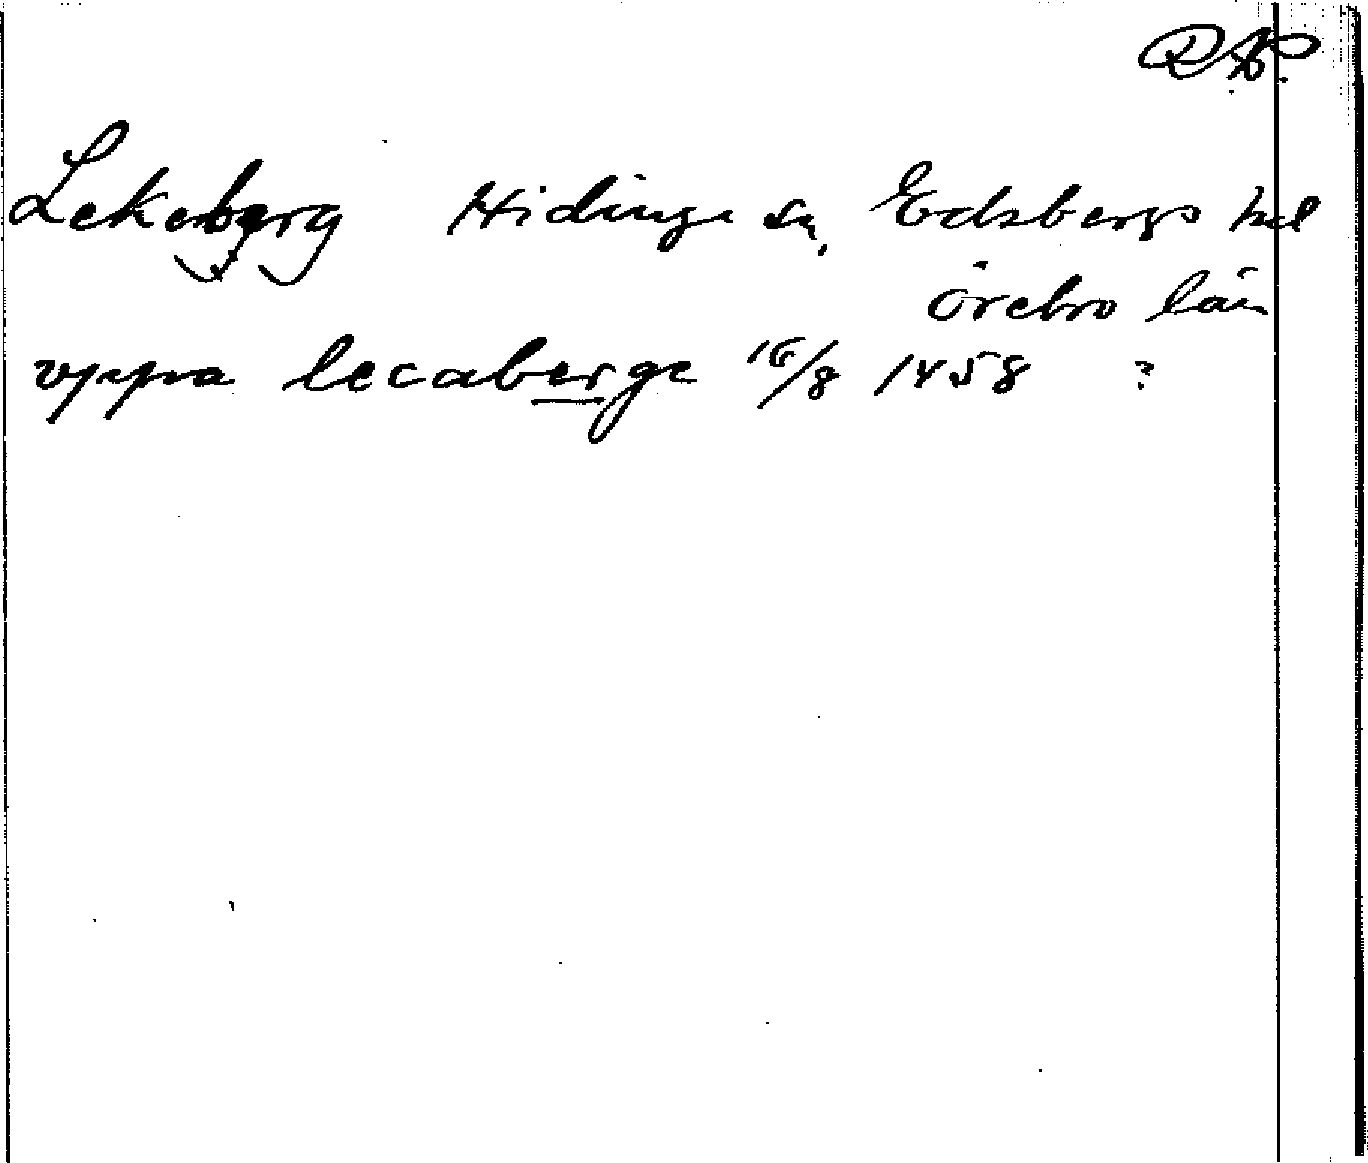 RAP.
Lekeberg Hidinge sn, Edsbergs hd
Örebro län
vppa lecaberge 16/8 1458 ?